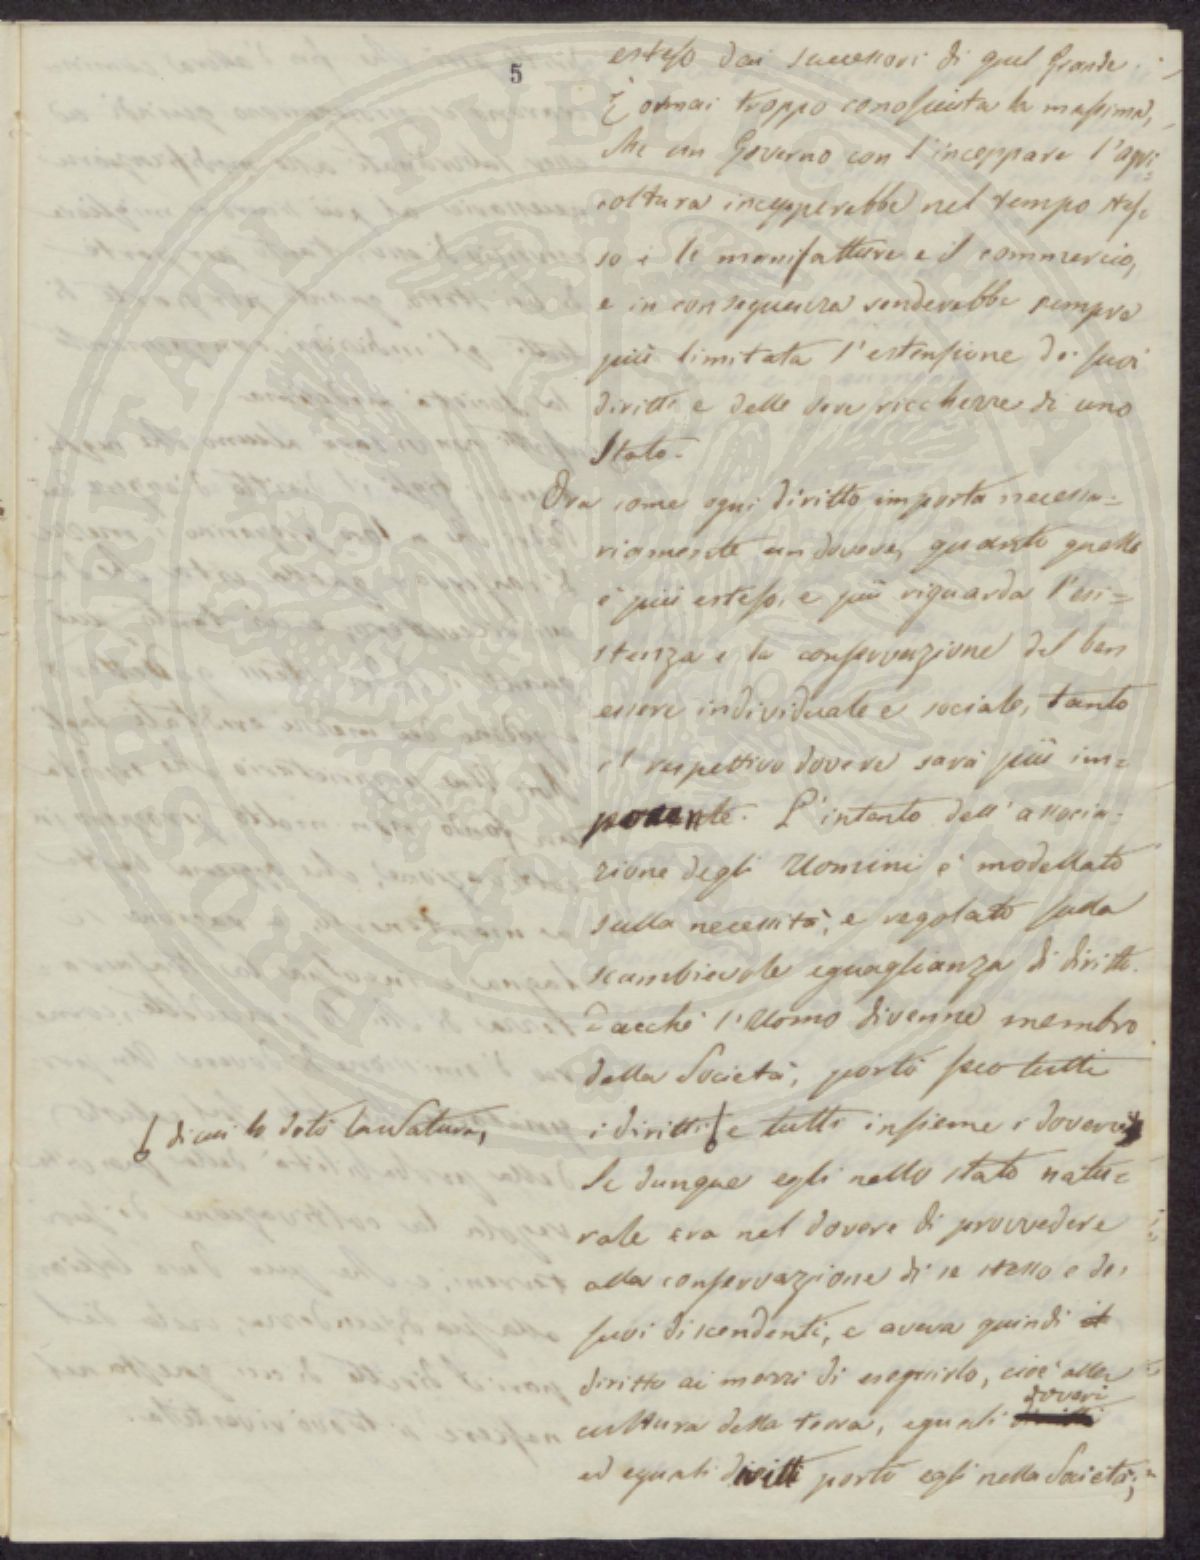 5
esteso dai successori di quel Grande.
È ormai troppo conosciuta la massima,
che un Governo con l'inceppare l'agri=
coltura incepperebbe nel tempo stes=
so e le manifatture e il commercio,
e in conseguenza renderebbe sempre
più limitata l'estensione de' suoi
diritti e delle vere ricchezze di uno
Stato.
Ora come ogni diritto importa necessa=
riamente un dovere, quanto quello
è più esteso, e più riguarda l'esi=
stenza e la conservazione del ben
essere individuale e sociale, tanto
il respettivo dovere sarà più im=
ponente. L'intento dell'associa=
zione degli Uomini è modellato
sulla necessità, e regolato sulla
scambievole eguaglianza di diritti.
Dacchè l'Uomo divenne membro
della Società, portò seco tutti
i diritti e tutti insieme i doveri
di cui lo dotò la Natura,
Se dunque egli nello stato natu=
rale era nel dovere di provvedere
alla conservazione di se stesso e de'
suoi discendenti, e aveva quindi il
diritto ai mezzi di eseguirlo, cioè alla
cultura della terra, eguali doveri
ed eguali diritti portò egli nella Società;
PROSPERITATI PUBLICAE